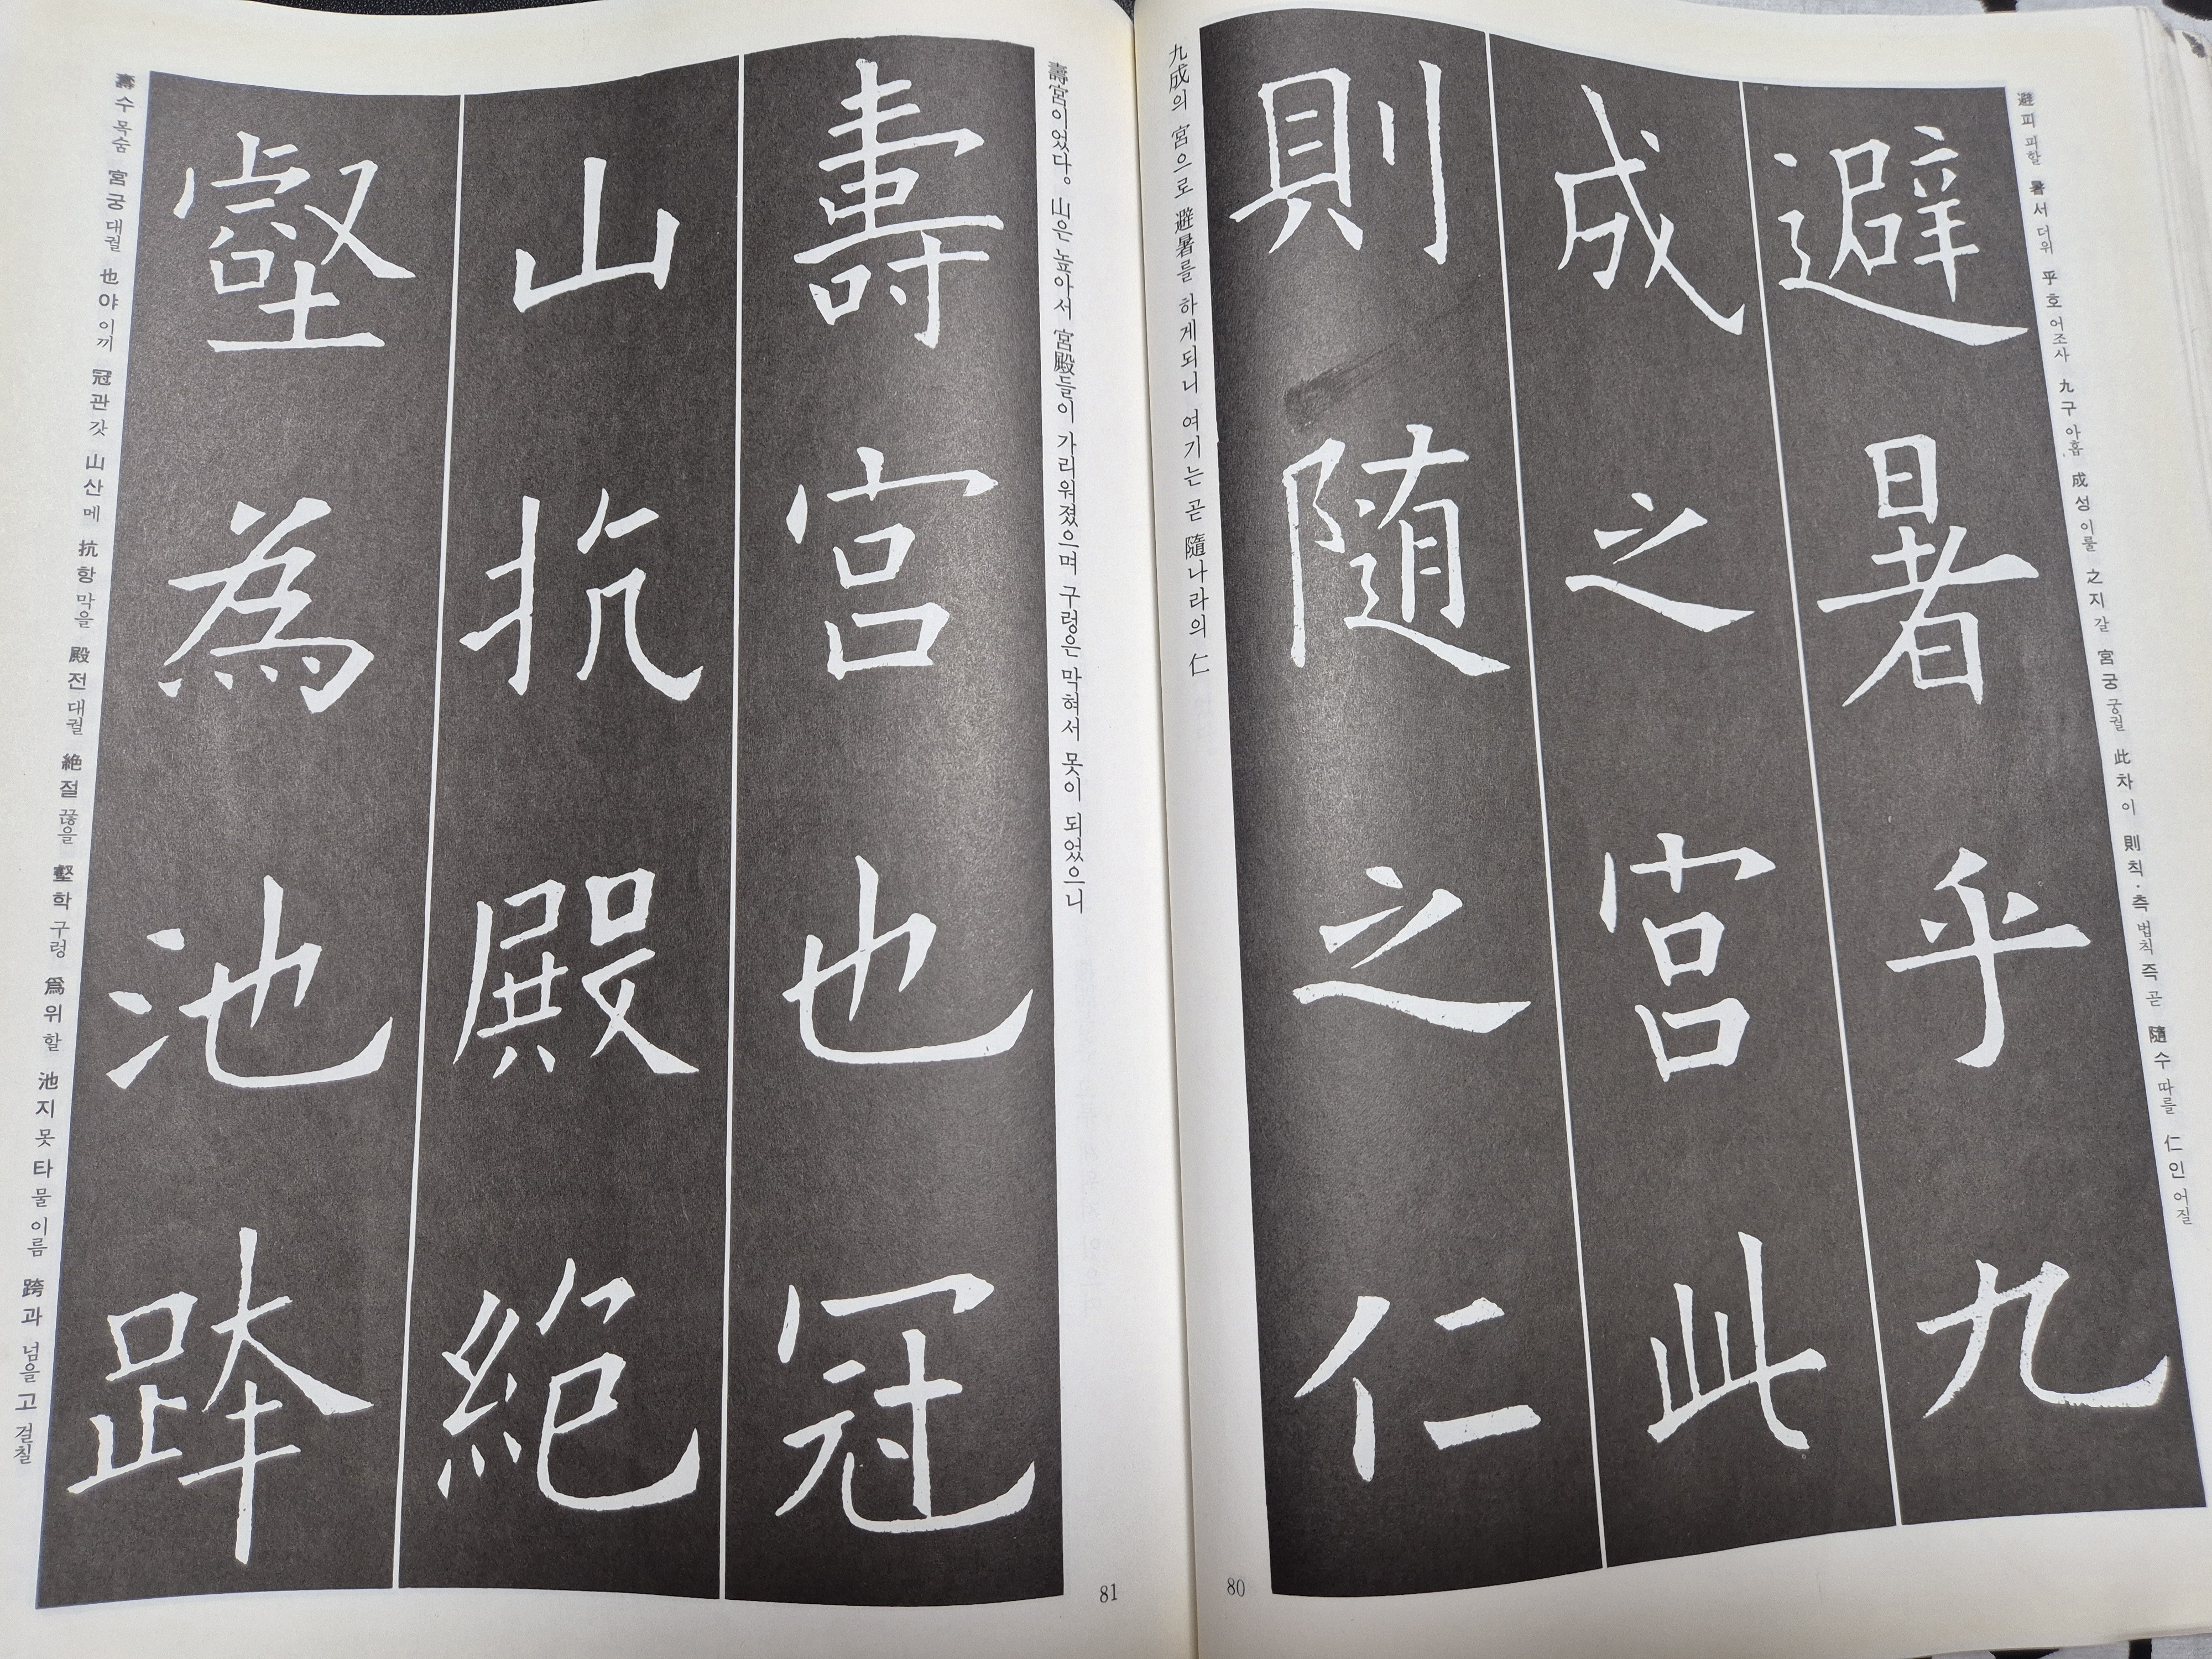 避피피할 暑서더위 乎호어조사 九구아홉 成성이룰 之지갈 宮궁궁궐 此차이 則칙·측법칙즉곧 隨수따를 仁인어질
避暑乎九
成之宮此
則随之仁
九成의 宮으로 避暑를 하게되니 여기는 곧 隨나라의 仁
80
壽宮이었다。山은 높아서 宮殿들이 가리워졌으며 구렁은 막혀서 못이 되었으니
壽宮也冠
山抗殿絶
壑為池跨
壽수목숨 宮궁대궐 也야이끼 冠관갓 山산메 抗항막을 殿전대궐 絶절끊을 壑학구렁 爲위할 池지못타물이름 跨과넘을고걸칠
81